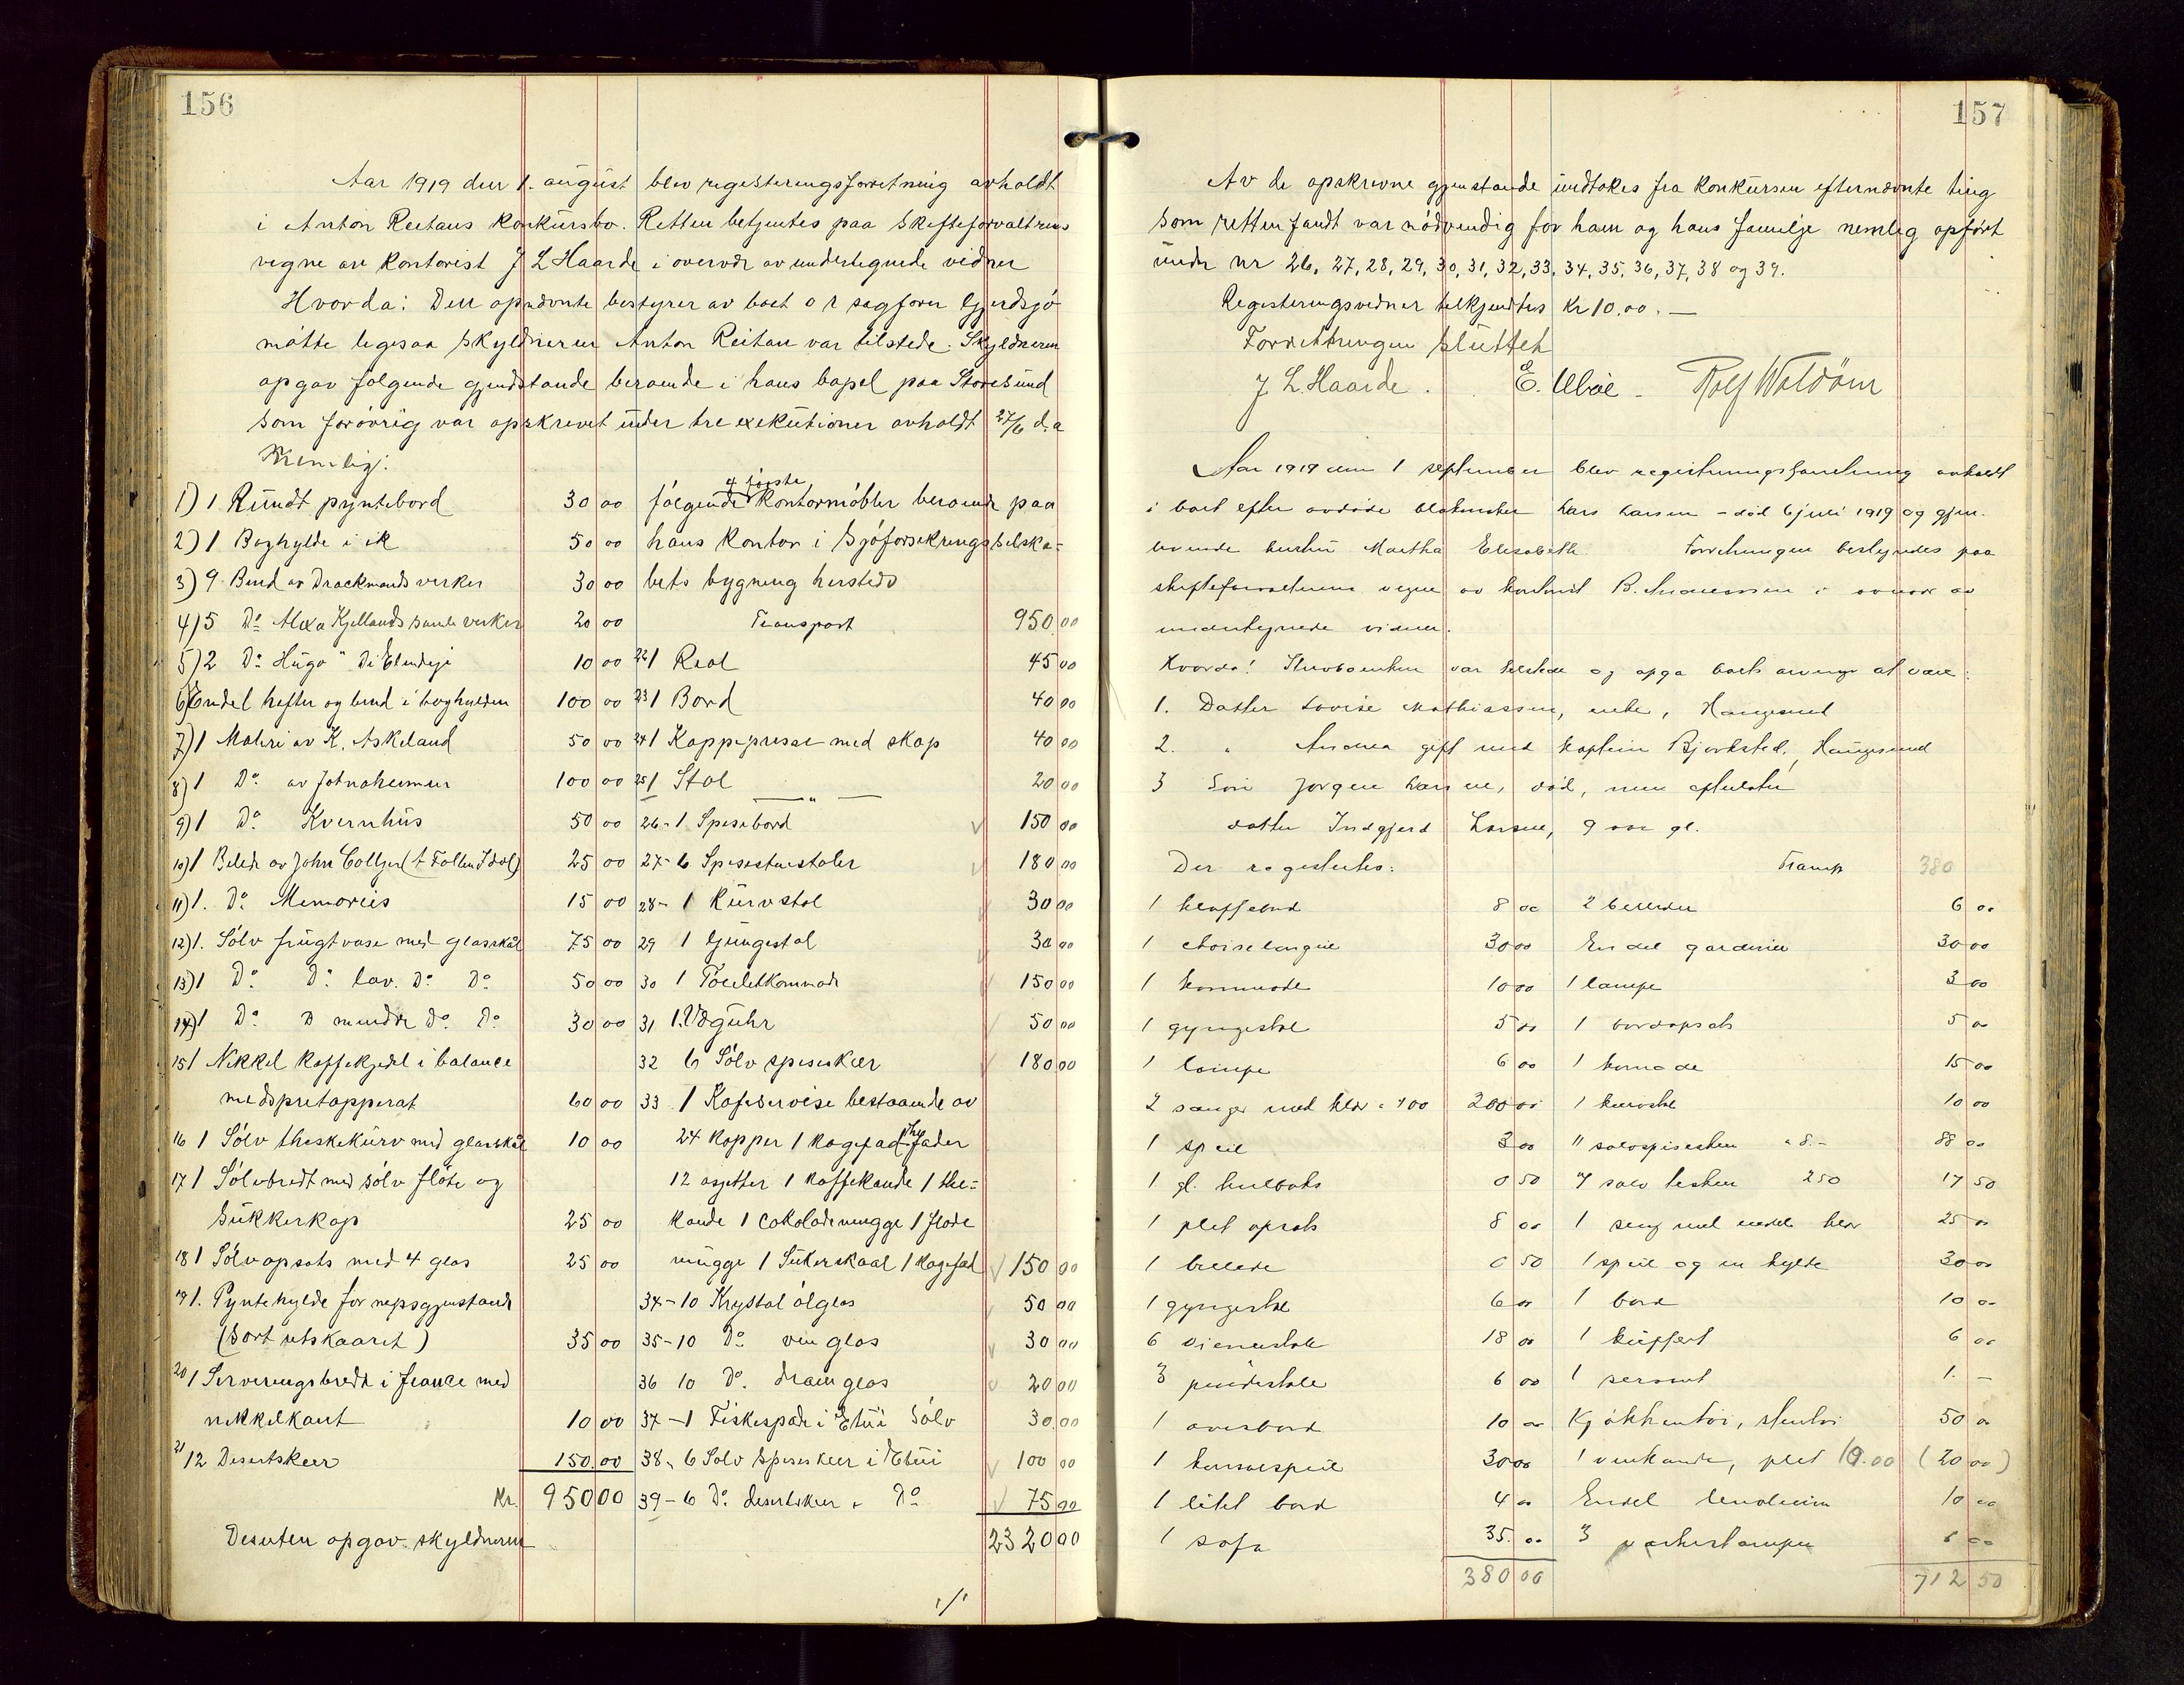 156
Aar 1919 den 1. august blev registeringsforretning avholdt
i Anton Reitans konkursbo. Retten betjentes paa skifteforvaltrens
vegne av kontorist J L Haarde i overvær av undertegnede vidner
Hvorda: Den opnævnte bestyrer av boet o r sagfører Gjerdsjø
møtte legesaa skyldneren Anton Reitan var tilstede. Skyldneren
opgav følgende gjendstande beroende i hans bopel paa Storesund
som forøvrig var opskrevet under tre exekutioner avholdt 27/6 d.a
Nemlig:
1) 1 Rundt pyntebord 30 00
2) 1 Boghylde i ek 50 00
3) 9 Bind av Drackmands verker 30 00
4) 5 Do Alexa Kjellands saml verker 20 00
5) 2 Do Hugo " De Elendige 10 00
6) Endel hefter og bind i boghylden 100 00
7) 1 Maleri av K. Askeland 50 00
8) 1 Do av Jotnaheimen 100 00
9) 1 Do Kvernhus 50 00
10) 1 Belede av John Collyer (A Fallen Idol) 25 00
11) 1. Do Memories 15 00
12) 1. Sølv frugtvase med glasskål 75 00
13) 1 Do Do lav. Do Do 50 00
14) 1 Do D mindre do. Do. 30 00
15 1 Nikkel kaffekjedel i balance
med spretapperat 60 00
16 1 Sølv theskekurv med glasskål 10 00
17 1 Sølvbredt med sølv fløte og
sukkerkop 25 00
18 1 Sølvopsats med 4 glas 25 00
19 1. Pyntehylde for nepsgjenstand
(Sort utskaaret) 35 00
20 1 Serveringsbredt i feance med
nikkelkant 10 00
21 12 Desertskeer 150.00
Kr. 950 00
Desuten opgav skyldneren
følgende 4 første kontormøbler beroende paa
hans kontor i Sjøforsekringsselska=
bets bygning hersteds
Transport 950.00
22 1 Reol 45 00
23 1 Bord 40 00
24 1 Koppepresse med skap 40 00
25 1 Stol 20 00
— " —
26 - 1 Spisebord 150 00
27 - 6 Spisestuestoler 180 00
28 - 1 Kurvstol 30 00
29 1 Gyngestol 30 00
30 1 Toeletkommode 150 00
31 1. Væguhr 50 00
32 6 Sølv spiseskeer 180 00
33 1 Kafeservise bestaaende av
24 kopper 1 kagefad the fader
12 asjetter 1 kaffekande 1 the=
kande 1 cokolademugge 1 fløde
mugge 1 Sukerskaal 1 kagefad 150 00
34 - 10 Krystal ølglas 50 00
35 - 10 Do vin glas 30 00
36 10 Do. dram glas 20 00
37 - 1 Fiskespade i Etui Sølv 30.00
38 - 6 Sølv spiseskeer i Etui 100 00
39 - 6 Do. desertskeer " Do 75 00
2320 00
157
Av de opskrevne gjenstande undtokes fra konkursen efternævnte ting
som retten fandt var nødvendig for ham og hans familje nemlig opført
under nr 26, 27, 28, 29, 30, 31, 32, 33, 34, 35, 36, 37, 38 og 39.
Registeringsvedner telkjendtes Kr 10.00. —
Forretningen sluttet
J. L. Haarde. E. Ubøe - Rolf Waldøm
Aar 1919 den 1 september blev registreringsforretning avholdt
i boet efter avdøde Lars Larsen - død 6 juli 1919 og gjen-
levende hustru Martha Elisabeth Forretningen bestyredes paa
skifteforvalterens vegne av kontorist B. Andreassen i overvær av
undertegnede vidner.
Hvorda! var tilstede og opga boets arvinger at være:
1. Datter Lovise Mathiassen, enke, Haugesund
2. " Andrea gift med kaptein Bjorksted, Haugesund
3 Søn Jørgen Larsen, død, men efterlater
datter Indgjerd Larsen, 9 aar gl.
Der registertes:
1 klaffebord 8 00
1 choiselongue 30 00
1 kommode 10 00
1 gyngestol 5 00
1 lampe 6 00
2 senger med klær a 100 200 00
1 speil 3 00
1 gl. 0 50
1 plet opsats 8 00
1 billede 0 50
1 gyngestol 6 00
6 vienerstole 18 00
3 pindestole 6 00
1 10 00
1 konsolspeil 30 00
1 litet bord 4 00
1 sofa 35.00
380 00
Transp 380
2 billeder 6 00
En del gardiner 30 00
1 lampe 3 00
1 bordopsats 5 00
1 komode 15 00
1 kurvstol 10 00
11 sølvspiseskeer a 8.- 88 00
7 sølv teskeer 250 17 50
1 seng med endel klær 25 00
1 speil og en hylde 30 00
1 bord 10 00
1 kuffert 6 00
1 servant 1. -
Kjøkkentøi, stentøi 50 00
1 vinkande, plet 10.00 (20 00)
Endel linoleum 10 00
3 6 00
712 50